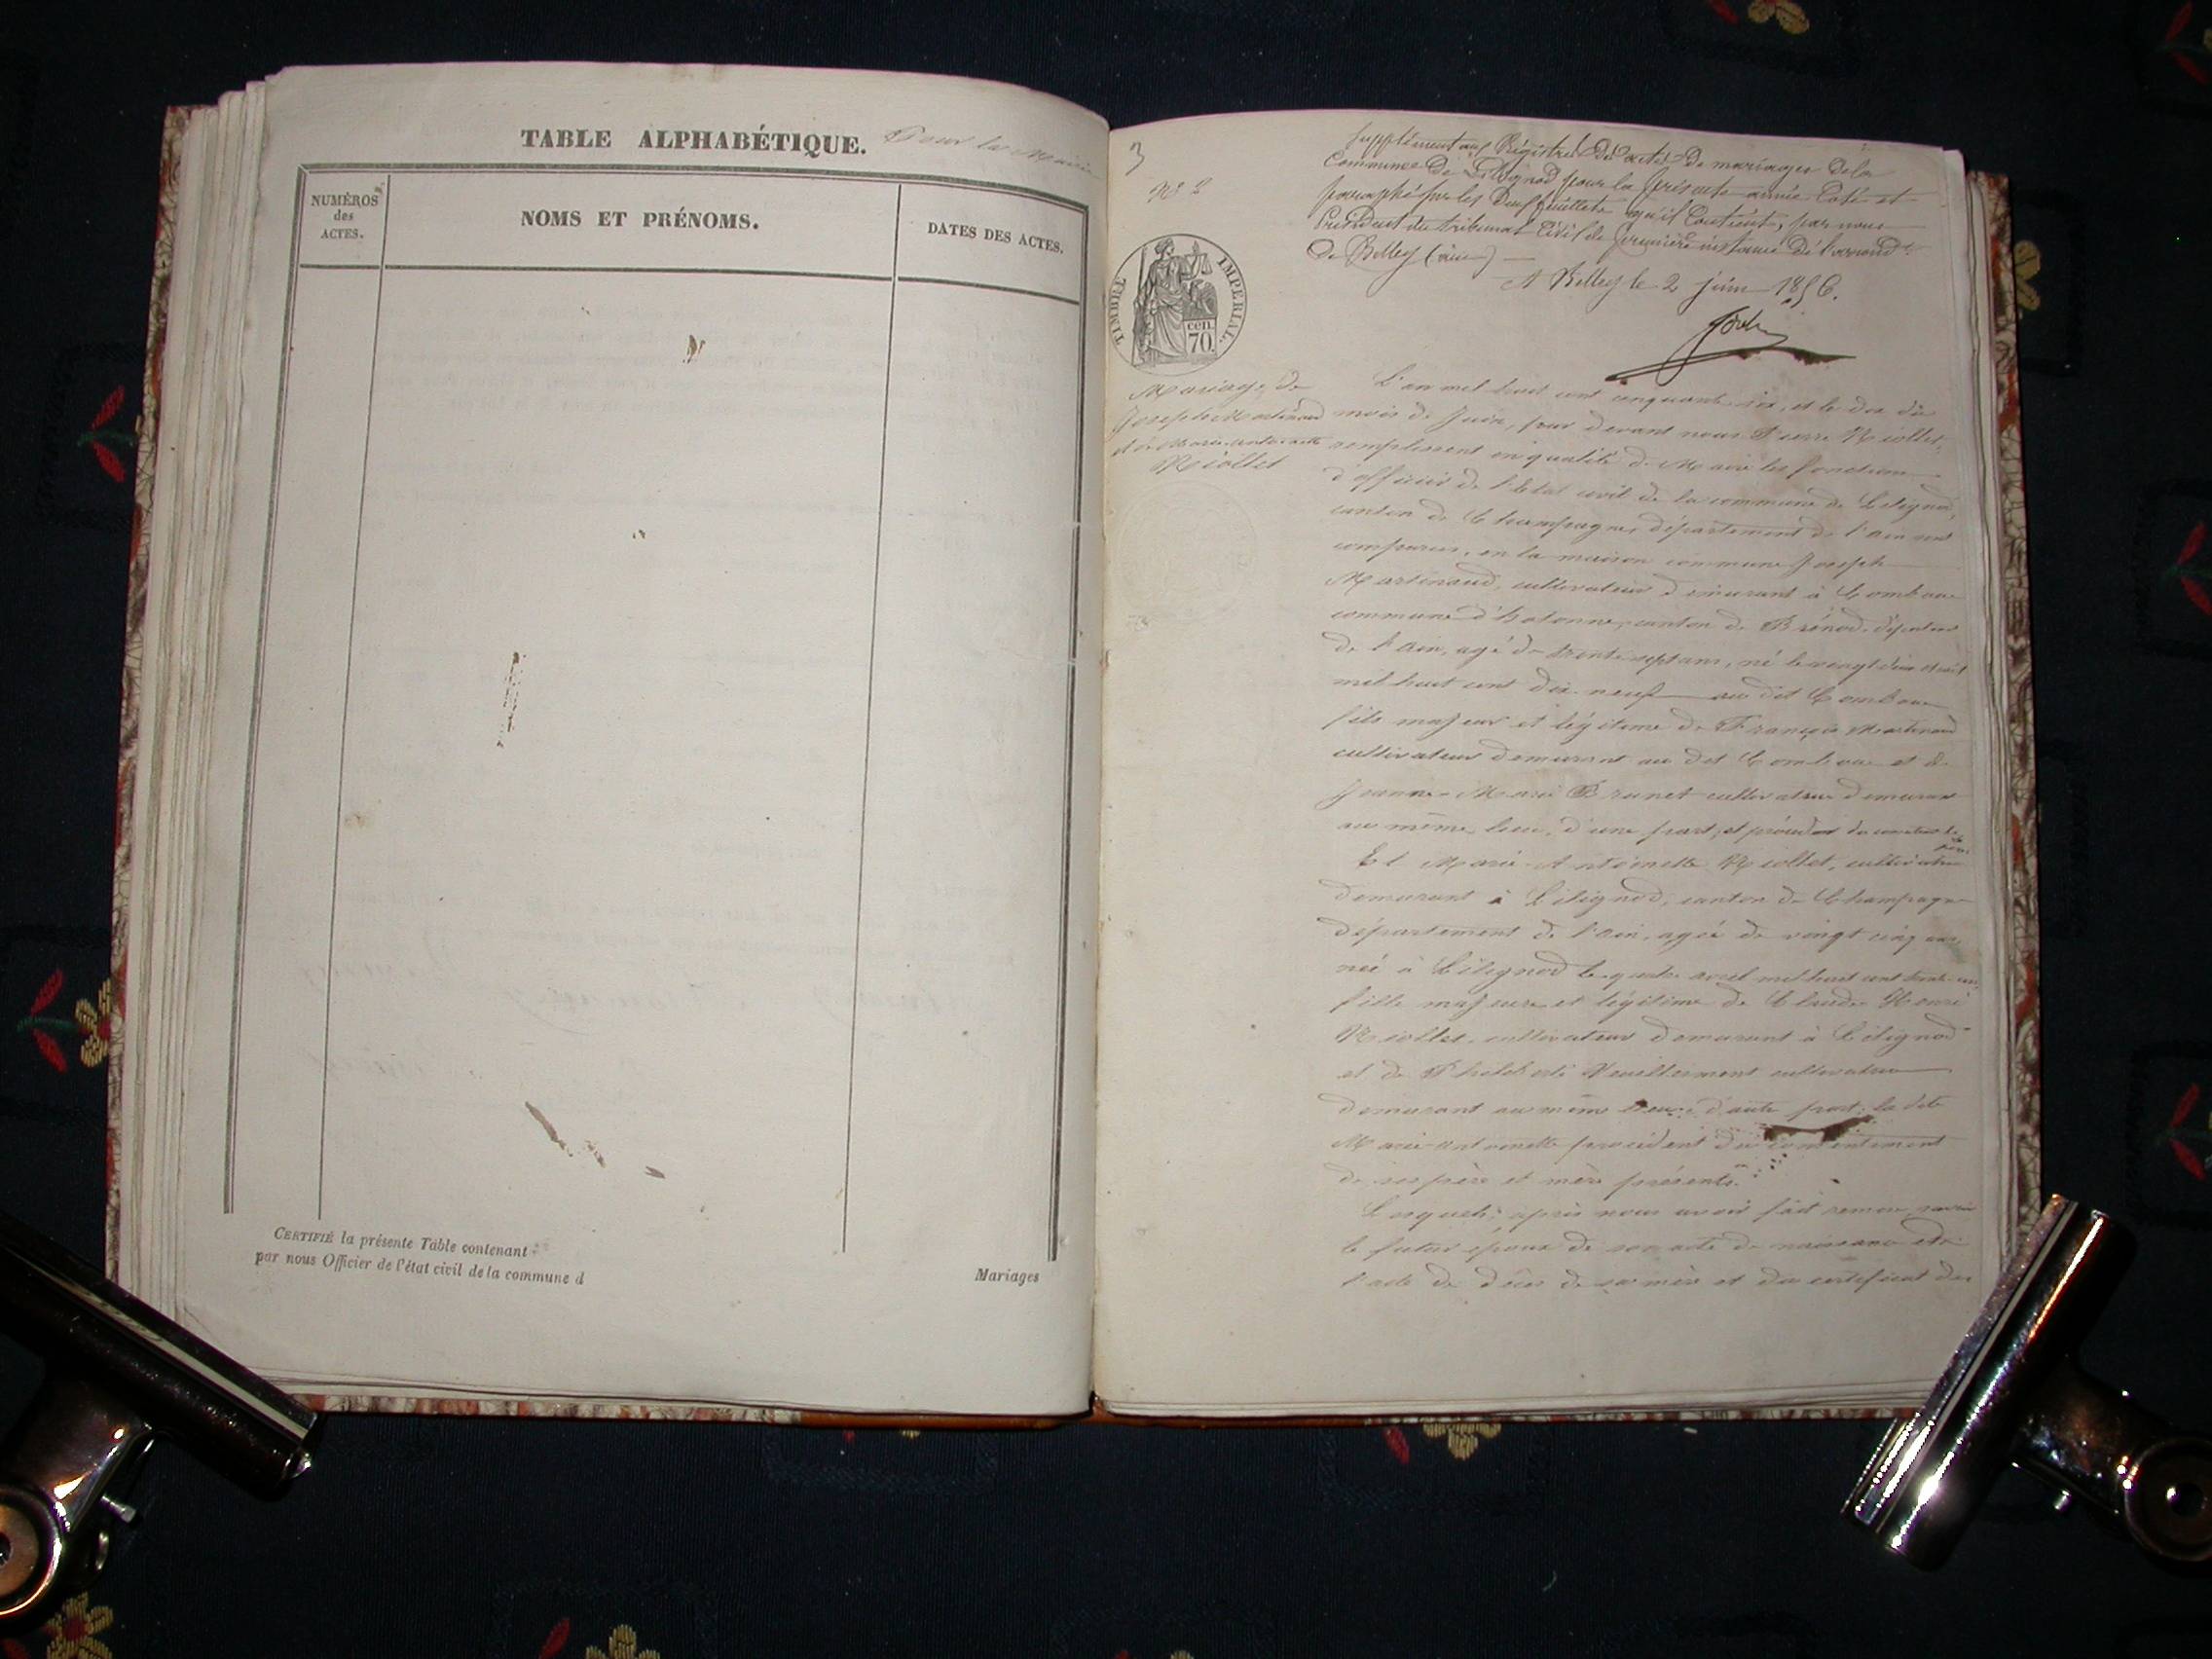 TABLE ALPHABÉTIQUE. Pour la Mairie
NUMÉROS
des
ACTES.
NOMS ET PRÉNOMS.
DATES DES ACTES.
CERTIFIÉ la présente Table contenant
par nous Officier de l'état civil de la commune d
Mariages
3
No 2
TIMBRE IMPÉRIAL.
cen.
70.
Supplément au Régistre des actes de mariages de la
Commune de Lilignod pour la présente année Coté et
paraphé sur les Deux feuillets qu'il Contient, par nous
Président du tribunal Civil de première instance de l'arrond.t
de Belley (ain)
A Belley le 2 juin 1856.
Mariage de
Joseph Martinaud
et de Marie-antoinette
Niollet
L'an mil huit cent cinquante six, et le dix du
mois de Juin, par devant nous Pierre Niollet,
remplissant en qualité de Maire les fonctions
d'officier de l'Etat civil de la commune de Lilignod,
canton de Champagne, département de l'ain sont
comparus, en la maison commune Joseph
Martinaud, cultivateur demeurant à
commune d'hotonne, canton de Brénod, départem
de l'ain, agé de trente sept ans, né le vingt deux
mil huit cent dix-neuf au dit
fils majeur et légitime de François Martinaud
cultivateur demeurant au dit et de
Jeanne-Marie Brunet cultivatrice demeurant
au même lieu, d'une part, et procédant du
Et Marie-Antoinette Niollet, cultivatrice
demeurant à Lilignod, canton de Champagne
département de l'ain, agée de vingt cinq ans,
née à Lilignod le quatre avril mil huit cent trente-un,
fille majeure et légitime de Claude Henri
Niollet, cultivateur demeurant à Lilignod
et de Philiberte Vuillermont cultivatrice
demeurant au même lieu, d'autre part; la dite
Marie-antoinette procédant du consentement
de ses père et mère présents.
Lesquels, après nous avoir fait remise, savoir
le futur époux de son acte de naissance et de
l'acte de décès de sa mère et du certificat des